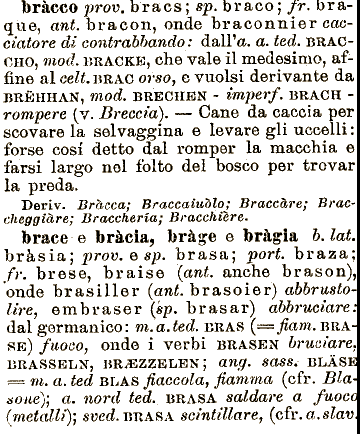 bràcco prov. bracs; sp. braco; fr. bra-
que, ant. bracon, onde braconnier cac-
ciatore di contrabbando: dall'a. a. ted. BRAC-
CHO, mod. BRACKE, che vale il medesimo, af-
fine al celt. BRAC orso, e vuolsi derivante da
BRËHHAN, mod. BRECHEN - imperf. BRACH -
rompere (v. Breccia). — Cane da caccia per
scovare la selvaggina e levare gli uccelli:
forse così detto dal romper la macchia e
farsi largo nel folto del bosco per trovar
la preda.
Deriv. Bràcca; Braccaiuòlo; Braccàre; Brac-
cheggiàre; Braccherìa; Bracchière.
brace e bràcia, bràge e bràgia b. lat.
bràsia; prov. e sp. brasa; port. braza;
fr. brese, braise (ant. anche brason),
onde brasiller (ant. brasoier) abbrusto-
lire, embraser (sp. brasar) abbruciare:
dal germanico: m. a. ted. BRAS (= fiam. BRA-
SE) fuoco, onde i verbi BRASEN bruciare,
BRASSELN, BRÆZZELEN; ang. sass. BLÄSE
= m. a. ted BLAS fiaccola, fiamma (cfr. Bla-
sone); a. nord ted. BRASA saldare a fuoco
(metalli); sved. BRASA scintillare, (cfr. a. slav.